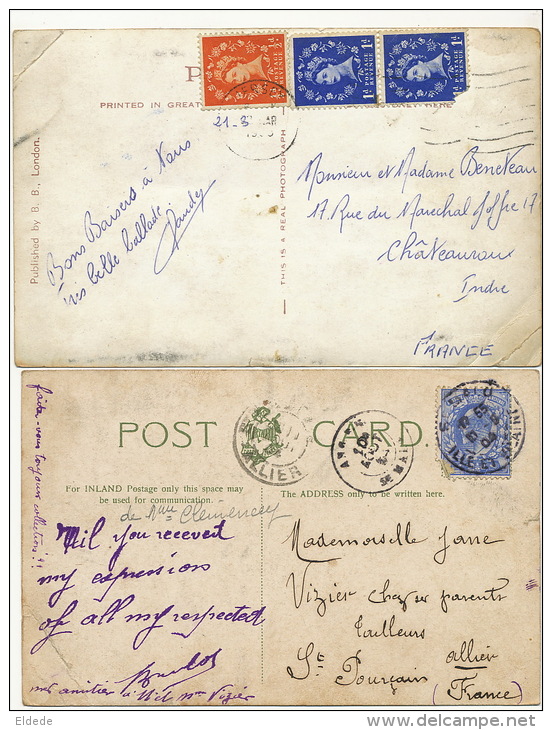 PRINTED IN GREAT
POSTAGE REVENUE
½d
1d
1d
21-3
Published by B. B., London.
THIS IS A REAL PHOTOGRAPH
Bons Baisers à Vous
très belle ballade
Monsieur et Madame Beneteau
17 Rue du Marechal Joffre 17
Châteauroux
Indre
FRANCE
POST CARD.
For INLAND Postage only this space may
be used for communication.
The ADDRESS only to be written here.
de Mme Clemencey
faites-vous toujours collection?
you receveit
my expressions
of all my respected
mes amitiés à
Vizier
Mademoiselle Jane
Vizier chez ses parents
Tailleurs
St Pourçain allier
(France)
ALLIER
Eldede
www.delcampe.net